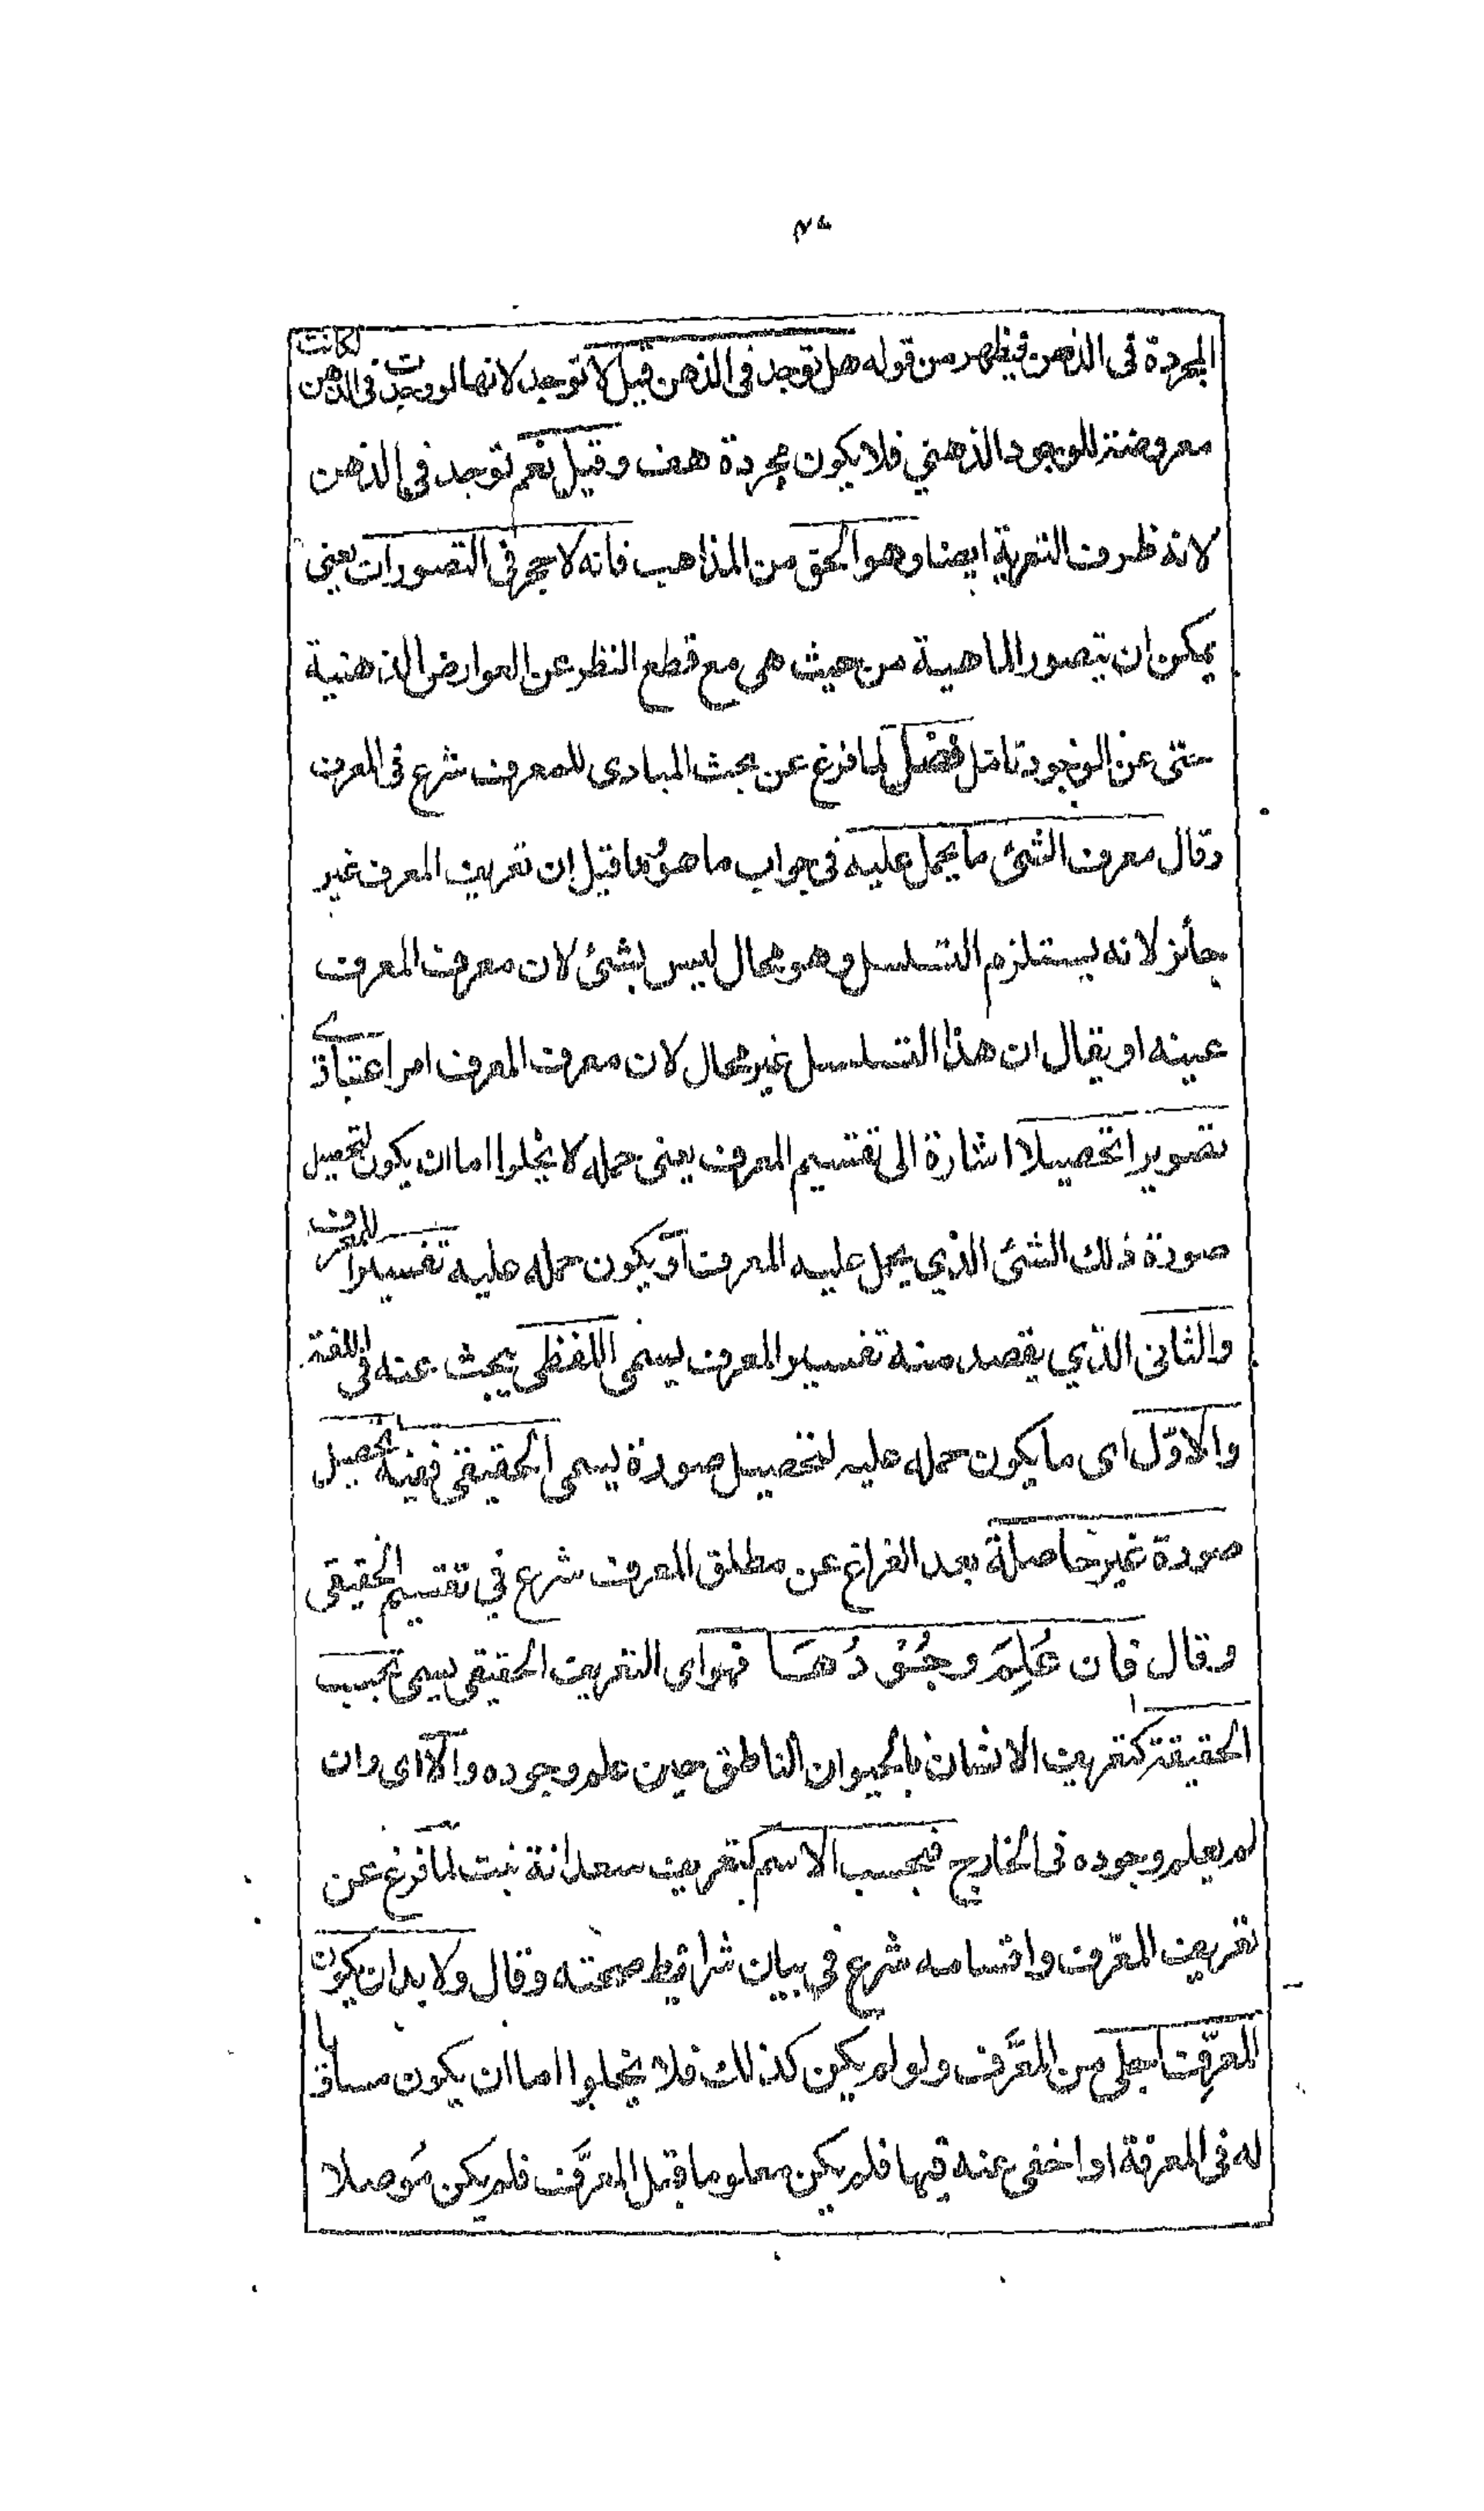 المجردة فى الذهن فيظهر من قوله هل توجد فى الذهن قيل لا توجد لانها لو وجدت فى الذهن لكانت
معروضة للوجود الذهني فلا يكون مجردة هف وقيل نعم توجد فى الذهن
لانه ظرف التعرية ايضا وهو الحق من المذاهب فانه لا حجر فى التصورات يعنى
يمكن ان يتصور الماهية من حيث هى مع قطع النظر عن العوارض الذهنية
حتى عن الوجود تامّل فصل لما فرغ عن بحث المبادى للمعرف شرع فى المعرف
وقال معرف الشئ ما يحمل عليه فى جواب ما هو وما قيل ان تعريف المعرف غير
جائز لانه يستلزم التسلسل وهو محال ليس بشئ لان معرف المعرف
عينه او يقال ان هذا التسلسل غير محال لان معرف المعرف امر اعتبارى
تصويرا تحصيلا اشارة الى تقسيم المعرف يعنى حمله لا يخلوا اما ان يكون لتحصيل
صورة ذلك الشئ الذي يحمل عليه المعرف او يكون حمله عليه تفسيرا للمعرف
والثانى الذي يقصد منه تفسير المعرف يسمى اللفظى يبحث عنه فى اللغة
والاوّل اى ما يكون حمله عليه لتحصيل صورة يسمى الحقيقى ففيه تحصيل
صورة غير حاصلة بعد الفراغ عن مطلق المعرف شرع في تقسيم الحقيقى
وقال فان عُلِمَ وجُوْدُهَا فهو اى التعريف الحقيقى يسمى بحسب
الحقيقة كتعريف الانسان بالحيوان الناطق حين علم وجوده والا اى وان
لم يعلم وجوده فى الخارج فبحسب الاسم كتعريف سعدانة نبت لمّا فرغ عن
تعريف المعّرف واقسامه شرع فى بيان شرائط صحته وقال ولا بد ان يكون
المعرِّف اجلى من المعَرَّف ولو لم يكن كذالك فلا يخلوا اما ان يكون مساويا
له فى المعرفة او اخفى عنه فيها فلم يكن معلوما قبل المعرَّف فلم يكن مُوصلا